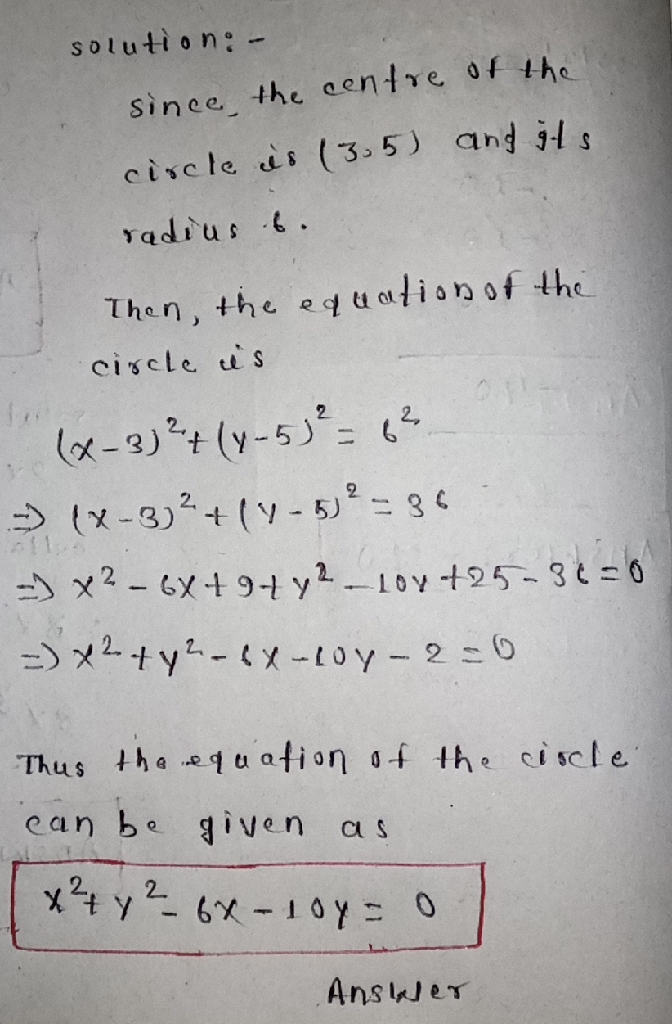 solution:-
since, the centre of the
circle is (3,5) and its
radius 6.
Then, the equation of the
circle is
(x-3)²+(y-5)²= 6²
⇒ (x-3)²+(y-5)²=36
⇒ x²-6x+9+y²-10y+25-36=0
⇒ x²+y²-6x-10y-2=0
Thus the equation of the circle
can be given as
x²+y²-6x-10y= 0
Answer